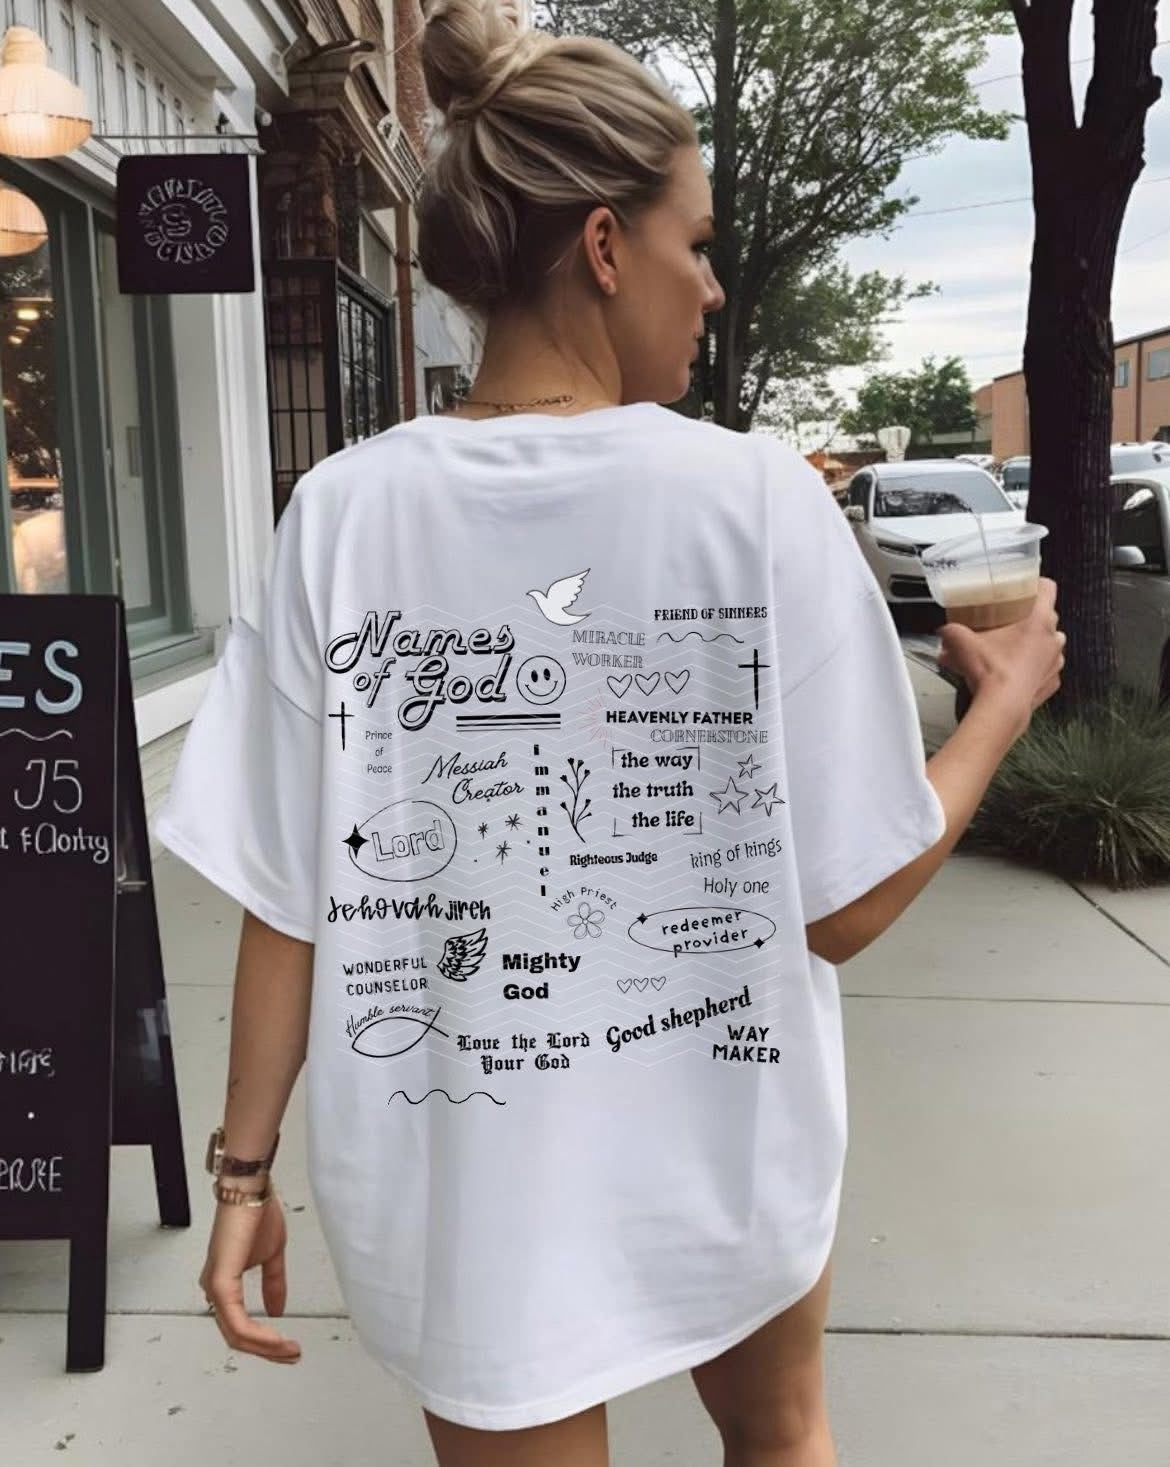 ES
J5
Names
of God
FRIEND OF SINNERS
MIRACLE
WORKER
HEAVENLY FATHER
CORNERSTONE
Prince
of
Peace
Messiah
Creator
immanuel
the way
the truth
the life
Lord
Righteous Judge
king of kings
Holy one
Jehovah jireh
High Priest
redeemer
provider
WONDERFUL
COUNSELOR
Mighty
God
Humble servant
Love the Lord
Your God
Good shepherd
WAY
MAKER